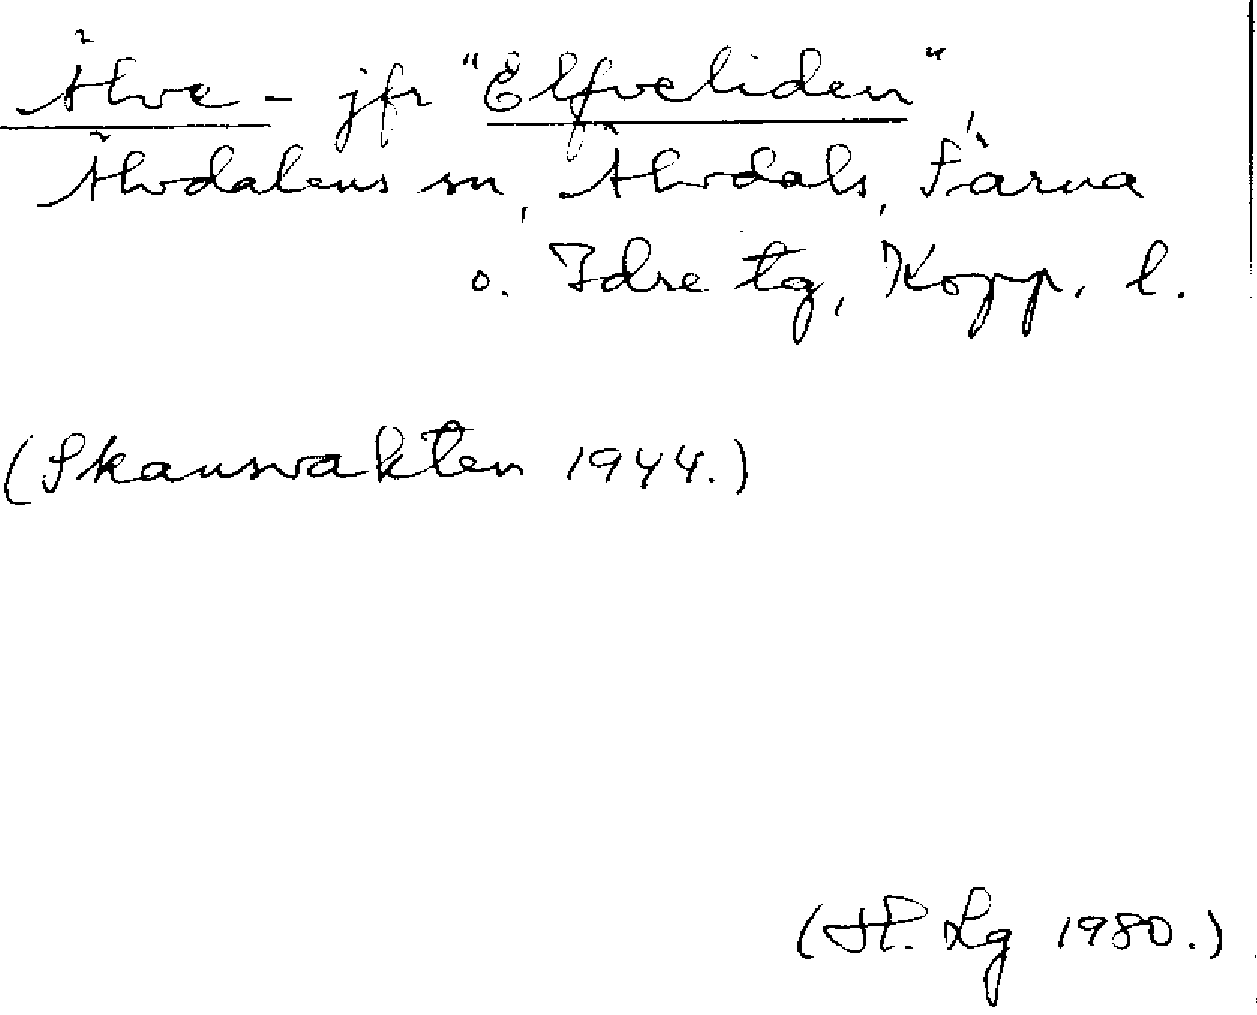 Älve- jfr "Elfveliden",
Älvdalens sn, Älvdals, Särna
o. Idre tg, Kopp. l.
(Skansvakten 1944.)
(St. Lg 1980.)